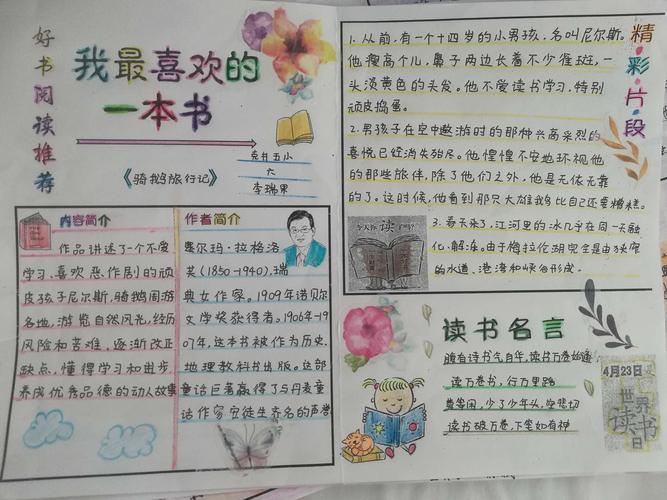 好书阅读推荐
我最喜欢的
一本书
克井五小
六
李瑞果
《骑鹅旅行记》
内容简介
作品讲述了一个不爱
学习、喜欢恶作剧的顽
皮孩子尼尔斯，骑鹅周游
各地，游览自然风光，经历
风险和苦难，逐渐改正
缺点，懂得学习和进步，
养成优秀品德的动人故事
作者简介
塞尔玛·拉格洛
芙(1850-1940)，瑞
典女作家。1909年诺贝尔
文学奖获得者。1906年-19
07年，这本书被作为历史、
地理教科书出版。这部
童话巨著赢得了与丹麦童
话作家安徒生齐名的声誉
精·彩·片·段
1.从前，有一个十四岁的小男孩，名叫尼尔斯。
他瘦高个儿，鼻子两边长着不少雀斑，一
头淡黄色的头发。他不爱读书学习，特别
顽皮捣蛋。
2.男孩子在空中遨游时的那种兴高采烈的
喜悦已经消失殆尽。他惶惶不安地环视他
的那些旅伴，除了他们之外，他是无依无靠
的了。这时候，他看到那只大雄鹅比自己还要糟糕。
今天你读了吗？
3.春天来了，江河里的冰几乎在同一天融
化、解冻。由于梅拉伦湖完全是由狭窄
的水道、港湾和峡谷形成。
读书名言
腹有诗书气自华，读书万卷始通
读万卷书，行万里路
莫等闲，少了少年头，空悲切
读书破万卷，下笔如有神
4月23日
世界
读书
日